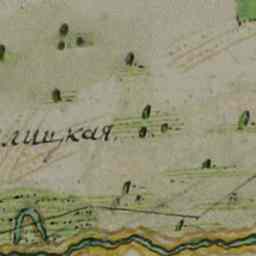 лицкая.